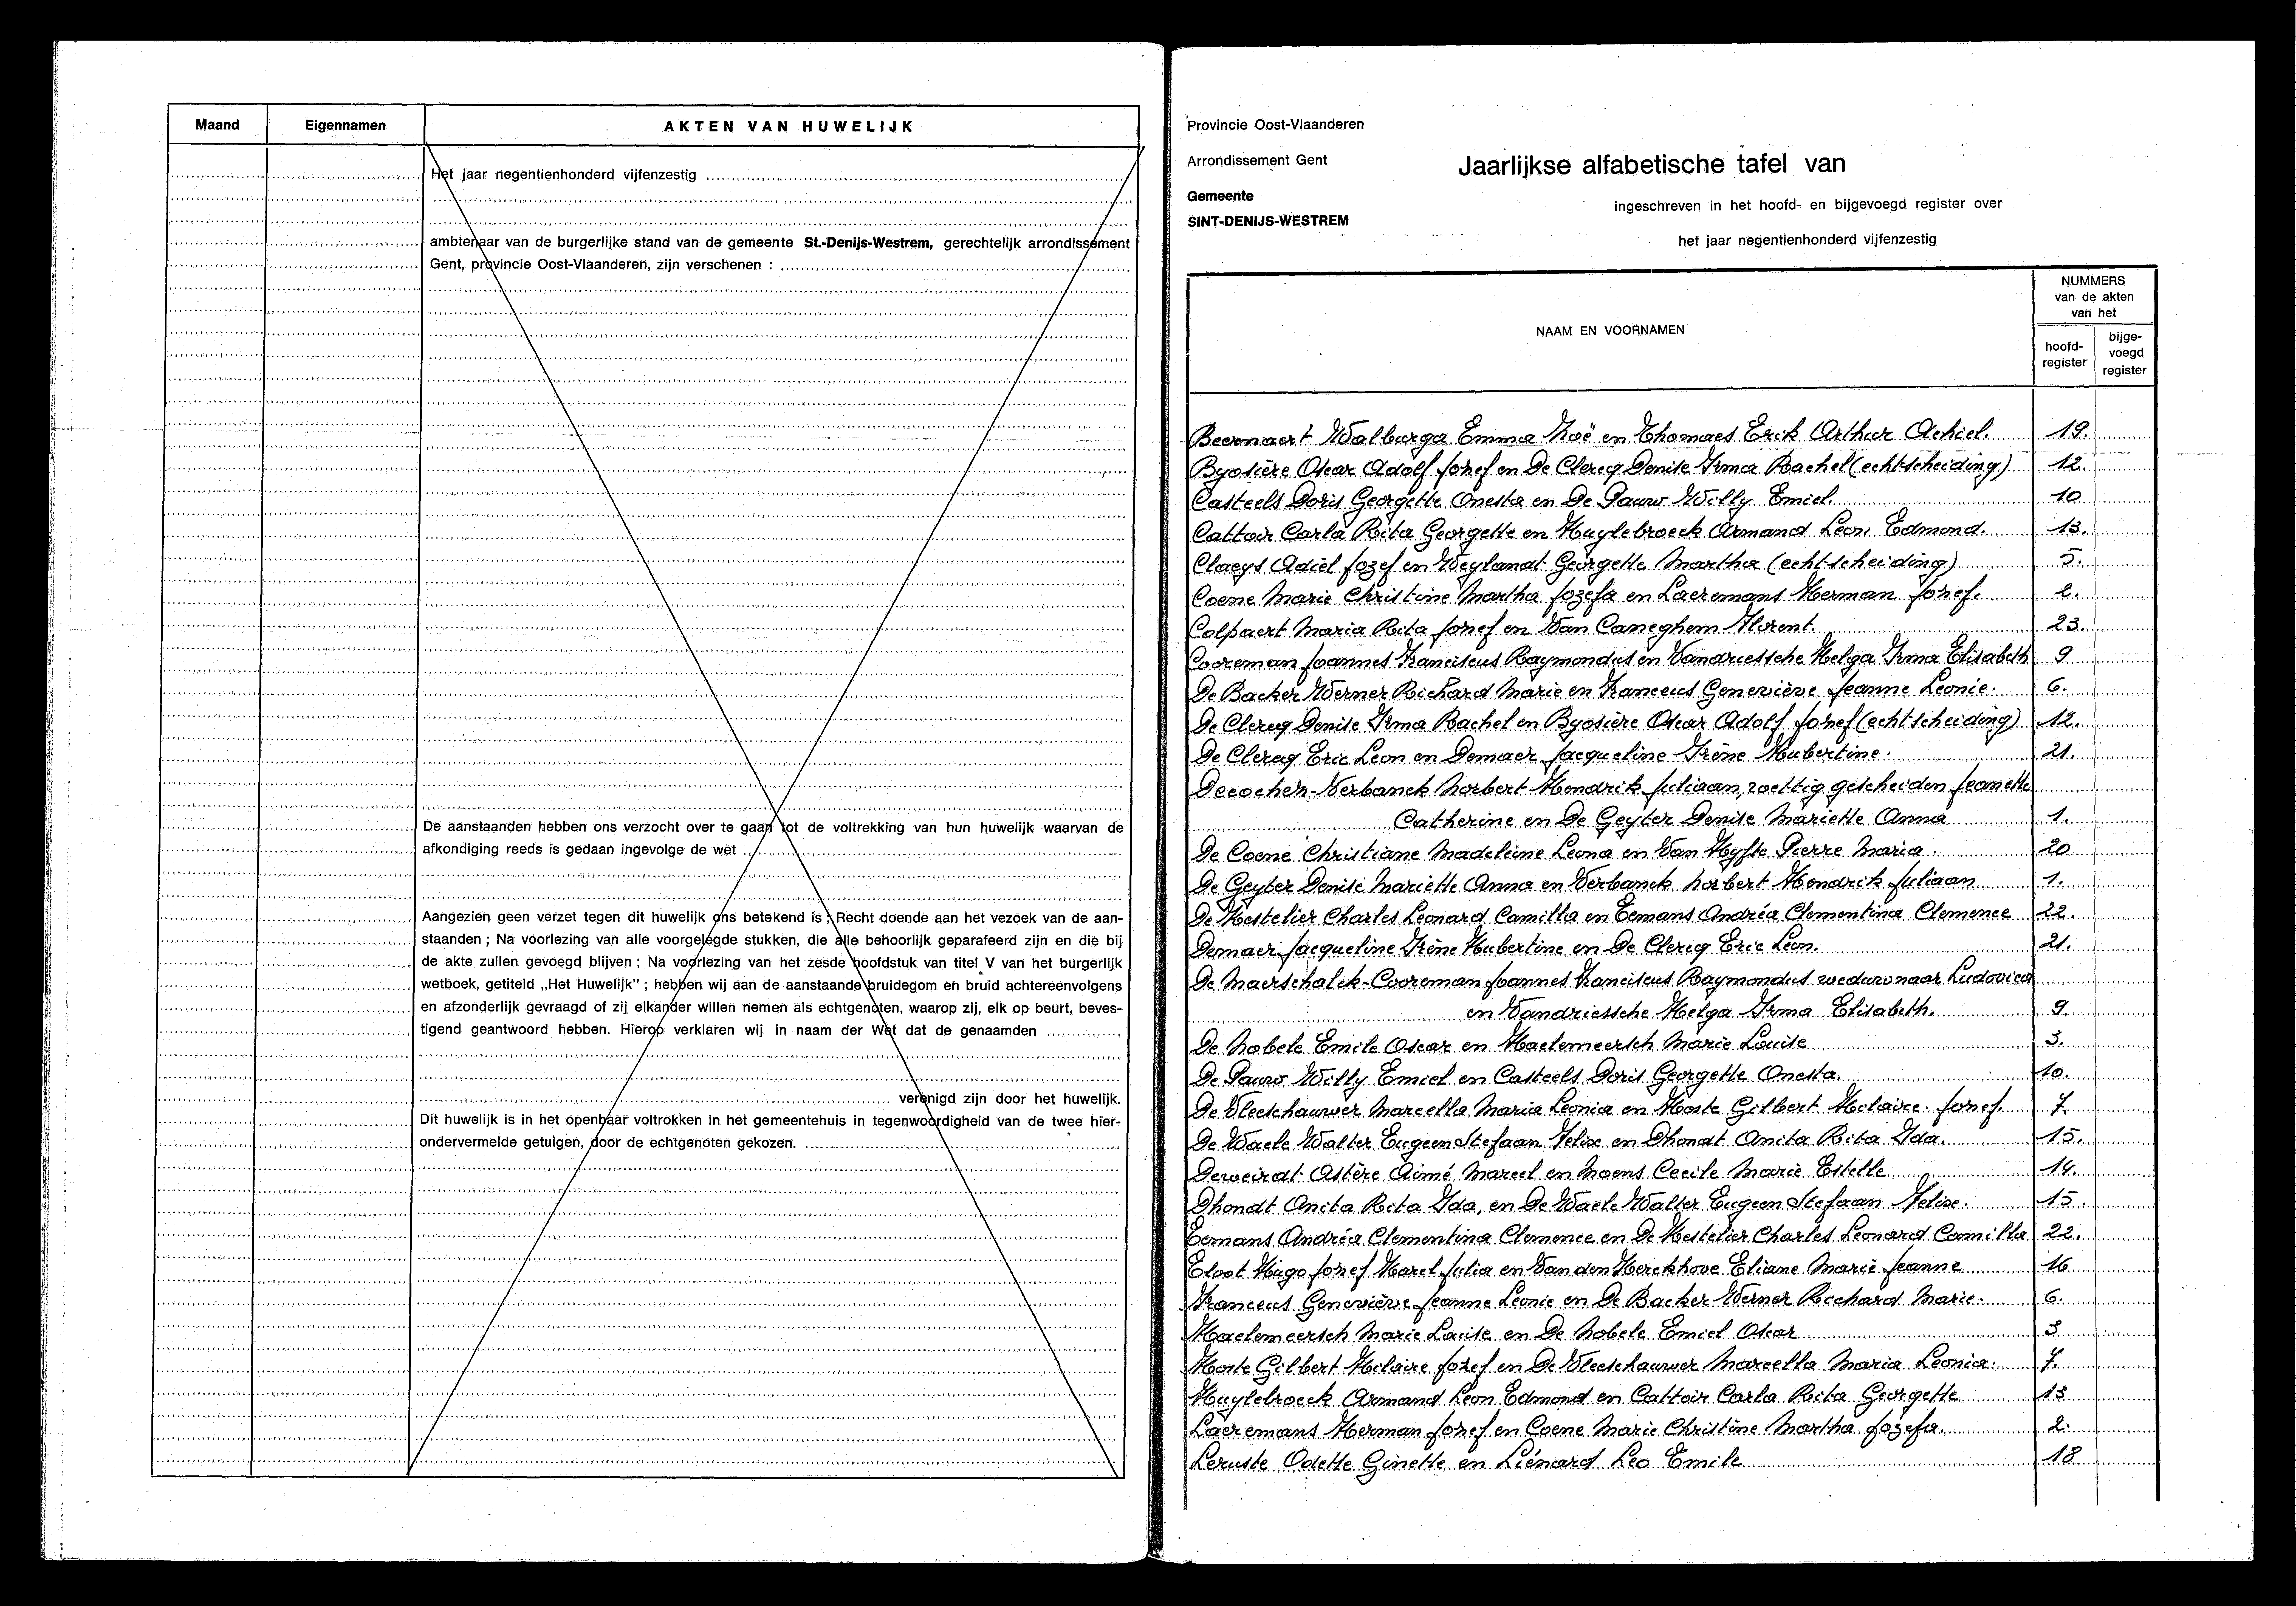 Maand Eigennamen AKTEN VAN HUWELIJK
Het jaar negentienhonderd vijfenzestig
ambtenaar van de burgerlijke stand van de gemeente St.-Denijs-Westrem, gerechtelijk arrondissement
Gent, provincie Oost-Vlaanderen, zijn verschenen :
De aanstaanden hebben ons verzocht over te gaan tot de voltrekking van hun huwelijk waarvan de
afkondiging reeds is gedaan ingevolge de wet
Aangezien geen verzet tegen dit huwelijk ons betekend is ; Recht doende aan het vezoek van de aan-
staanden ; Na voorlezing van alle voorgelegde stukken, die alle behoorlijk geparafeerd zijn en die bij
de akte zullen gevoegd blijven ; Na voorlezing van het zesde hoofdstuk van titel V van het burgerlijk
wetboek, getiteld „Het Huwelijk" ; hebben wij aan de aanstaande bruidegom en bruid achtereenvolgens
en afzonderlijk gevraagd of zij elkander willen nemen als echtgenoten, waarop zij, elk op beurt, beves-
tigend geantwoord hebben. Hierop verklaren wij in naam der Wet dat de genaamden
verenigd zijn door het huwelijk.
Dit huwelijk is in het openbaar voltrokken in het gemeentehuis in tegenwoordigheid van de twee hier-
ondervermelde getuigen, door de echtgenoten gekozen.
Provincie Oost-Vlaanderen
Arrondissement Gent
Gemeente
SINT-DENIJS-WESTREM
Jaarlijkse alfabetische tafel van
ingeschreven in het hoofd- en bijgevoegd register over
het jaar negentienhonderd vijfenzestig
NAAM EN VOORNAMEN
NUMMERS
van de akten
van het
hoofd-
register
bijge-
voegd
register
Beernaert Walburga Emma Noë en Thomaes Erik Arthur Achiel. 19.
Byosière Oscar Adolf Jozef en De Clercq Denise Irma Rachel (echtscheiding) 12.
Casteels Doris Georgette Onesta en De Pauw Willy Emiel. 10
Cattoir Carla Rita Georgette en Huylebroeck Armand Leon Edmond. 13.
Claeys Adiel Jozef en Weylandt Georgette Martha (echtscheiding) 5.
Coene Marie Christine Martha Jozefa en Laeremans Herman Jozef. 2.
Colpaert Maria Rita Jozef en Van Caneghem Florent. 23.
Cooreman Joannes Franciscus Raymondus en Vandriessche Helga Irma Elisabeth 9
De Backer Werner Richard Marie en Franceus Geneviève Jeanne Leonie. 6.
De Clercq Denise Irma Rachel en Byosière Oscar Adolf Jozef (echtscheiding) 12.
De Clercq Eric Leon en Demaer Jacqueline Irène Hubertine. 21.
Decocher-Verbanck Norbert Hendrik Juliaan, wettig gescheiden Jeanette
Catherine en De Geyter Denise Mariette Anna 1.
De Coene Christiane Madeleine Leona en Van Hyfte Pierre Maria. 20
De Geyter Denise Mariette Anna en Verbanck Norbert Hendrik Juliaan 1.
De Kestelier Charles Leonard Camilla en Eemans Andréa Clementina Clemence 22.
Demaer Jacqueline Irène Hubertine en De Clercq Eric Leon. 21.
De Maerschalck-Cooreman Joannes Franciscus Raymondus weduwnaar Ludovica
en Vandriessche Helga Irma Elisabeth. 9
De Nobele Emile Oscar en Haelemeersch Marie Louise 3.
De Pauw Willy Emiel en Casteels Doris Georgette Onesta. 10.
De Vleeschauwer Marcella Maria Leonia en Hoste Gilbert Hilaire Jozef. 7.
De Waele Walter Eugeen Stefaan Felix en Dhondt Anita Rita Ida. 15.
Deweirdt Astère Aimé Marcel en Moens Cecile Marie Estelle 14.
Dhondt Anita Rita Ida, en De Waele Walter Eugeen Stefaan Felix. 15.
Eemans Andréa Clementina Clemence en De Kestelier Charles Leonard Camilla 22.
Eloot Hugo Jozef Karel Julia en Van den Kerckhove Eliane Marie Jeanne 16
Franceus Geneviève Jeanne Leonie en De Backer Werner Richard Marie. 6.
Haelemeersch Marie Louise en De Nobele Emiel Oscar 3
Hoste Gilbert Hilaire Jozef en De Vleeschauwer Marcella Maria Leonia. 7.
Huylebroeck Armand Leon Edmond en Cattoir Carla Rita Georgette 13
Laeremans Herman Jozef en Coene Marie Christine Martha Jozefa. 2.
Leruste Odette Ginette en Liénard Leo Emile 18